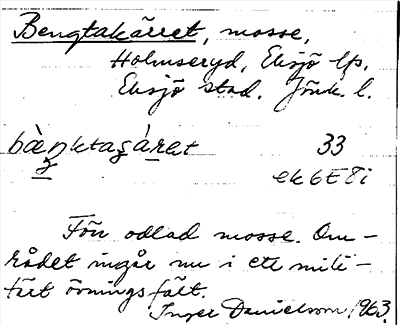 Bengtakärret, mosse,
Holmseryd, Eksjö lfs.
Eksjö stad. Jönk. l.
bæ̀ŋktaʂárət 33
ek 6E8i
Förr odlad mosse. Om-
rådet ingår nu i ett mili-
tärt övningsfält.
Inger Danielsson 1963.